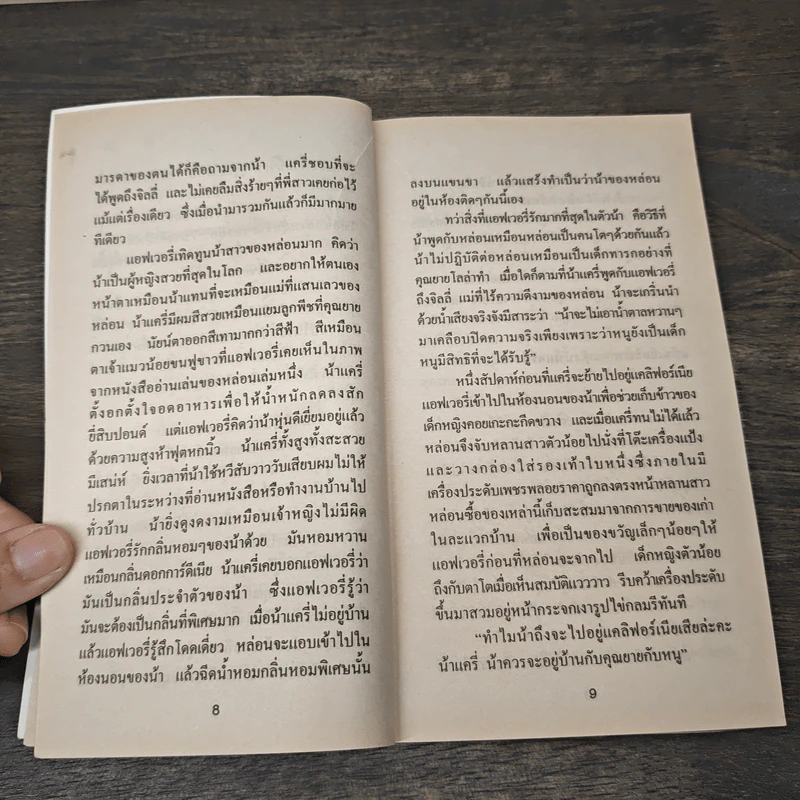 มารดาของตนได้ก็คือถามจากน้า แครี่ชอบที่จะ
ได้พูดถึงจิลลี่ และไม่เคยลืมสิ่งร้ายๆที่พี่สาวเคยก่อไว้
แม้แต่เรื่องเดียว ซึ่งเมื่อนำมารวมกันแล้วก็มีมากมาย
ทีเดียว
แอฟเวอรี่เทิดทูนน้าสาวของหล่อนมาก คิดว่า
น้าเป็นผู้หญิงสวยที่สุดในโลก และอยากให้ตนเอง
หน้าตาเหมือนน้าแทนที่จะเหมือนแม่ที่แสนเลวของ
หล่อน น้าแครี่มีผมสีสวยเหมือนแยมลูกพีชที่คุณยาย
กวนเอง นัยน์ตาออกสีเทามากกว่าสีฟ้า สีเหมือน
ตาเจ้าแมวน้อยขนฟูขาวที่แอฟเวอรี่เคยเห็นในภาพ
จากหนังสืออ่านเล่นของหล่อนเล่มหนึ่ง น้าแครี่
ตั้งอกตั้งใจอดอาหารเพื่อให้น้ำหนักลดลงสัก
ยี่สิบปอนด์ แต่แอฟเวอรี่คิดว่าน้าหุ่นดีเยี่ยมอยู่แล้ว
ด้วยความสูงห้าฟุตหกนิ้ว น้าแครี่ทั้งสูงทั้งสะสวย
มีเสน่ห์ ยิ่งเวลาที่น้าใช้หวีสับวาววับเสียบผมไม่ให้
ปรกตาในระหว่างที่อ่านหนังสือหรือทำงานบ้านไป
ทั่วบ้าน น้ายิ่งดูงดงามเหมือนเจ้าหญิงไม่มีผิด
แอฟเวอรี่รักกลิ่นหอมๆของน้าด้วย มันหอมหวาน
เหมือนกลิ่นดอกการ์ดีเนีย น้าแครี่เคยบอกแอฟเวอรี่ว่า
มันเป็นกลิ่นประจำตัวของน้า ซึ่งแอฟเวอรี่รู้ว่า
มันจะต้องเป็นกลิ่นที่พิเศษมาก เมื่อน้าแครี่ไม่อยู่บ้าน
แล้วแอฟเวอรี่รู้สึกโดดเดี่ยว หล่อนจะแอบเข้าไปใน
ห้องนอนของน้า แล้วฉีดน้ำหอมกลิ่นหอมพิเศษนั้น
8
ลงบนแขนขา แล้วแสร้งทำเป็นว่าน้าของหล่อน
อยู่ในห้องติดๆกันนี้เอง
ทว่าสิ่งที่แอฟเวอรี่รักมากที่สุดในตัวน้า คือวิธีที่
น้าพูดกับหล่อนเหมือนหล่อนเป็นคนโตๆด้วยกันแล้ว
น้าไม่ปฏิบัติต่อหล่อนเหมือนเป็นเด็กทารกอย่างที่
คุณยายโลล่าทำ เมื่อใดก็ตามที่น้าแครี่พูดกับแอฟเวอรี่
ถึงจิลลี่ แม่ที่ไร้ความดีงามของหล่อน น้าจะเกริ่นนำ
ด้วยน้ำเสียงจริงจังมีสาระว่า “น้าจะไม่เอาน้ำตาลหวานๆ
มาเคลือบปิดความจริงเพียงเพราะว่าหนูยังเป็นเด็ก
หนูมีสิทธิที่จะได้รับรู้”
หนึ่งสัปดาห์ก่อนที่แครี่จะย้ายไปอยู่แคลิฟอร์เนีย
แอฟเวอรี่เข้าไปในห้องนอนของน้าเพื่อช่วยเก็บข้าวของ
เด็กหญิงคอยเกะกะกีดขวาง และเมื่อแครี่ทนไม่ได้แล้ว
หล่อนจึงจับหลานสาวตัวน้อยไปนั่งที่โต๊ะเครื่องแป้ง
และวางกล่องใส่รองเท้าใบหนึ่งซึ่งภายในมี
เครื่องประดับเพชรพลอยราคาถูกลงตรงหน้าหลานสาว
หล่อนซื้อของเหล่านี้เก็บสะสมมาจากการขายของเก่า
ในละแวกบ้าน เพื่อเป็นของขวัญเล็กๆน้อยๆให้
แอฟเวอรี่ก่อนที่หล่อนจะจากไป เด็กหญิงตัวน้อย
ถึงกับตาโตเมื่อเห็นสมบัติแวววาว รีบคว้าเครื่องประดับ
ขึ้นมาสวมอยู่หน้ากระจกเงารูปไข่กลมรีทันที
“ทำไมน้าถึงจะไปอยู่แคลิฟอร์เนียเสียล่ะคะ
น้าแครี่ น้าควรจะอยู่บ้านกับคุณยายกับหนู”
9